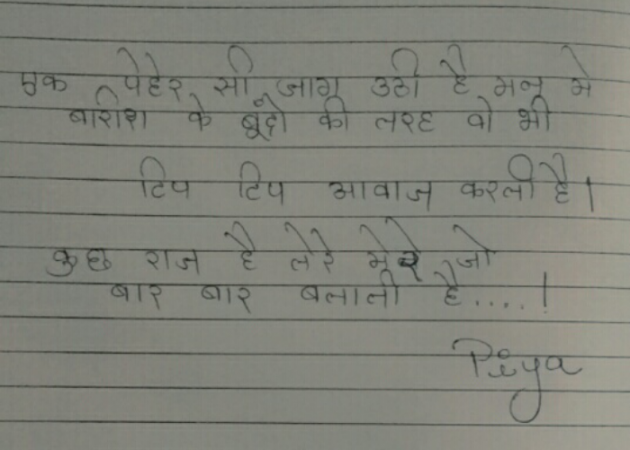 एक पेहेर सी जाग उठी है मन मे
बारीश के बूंदो की तरह वो भी
टिप टिप आवाज करती है।
कुछ राज है तेरे मेरे जो
बार बार बताती है....!
Priya